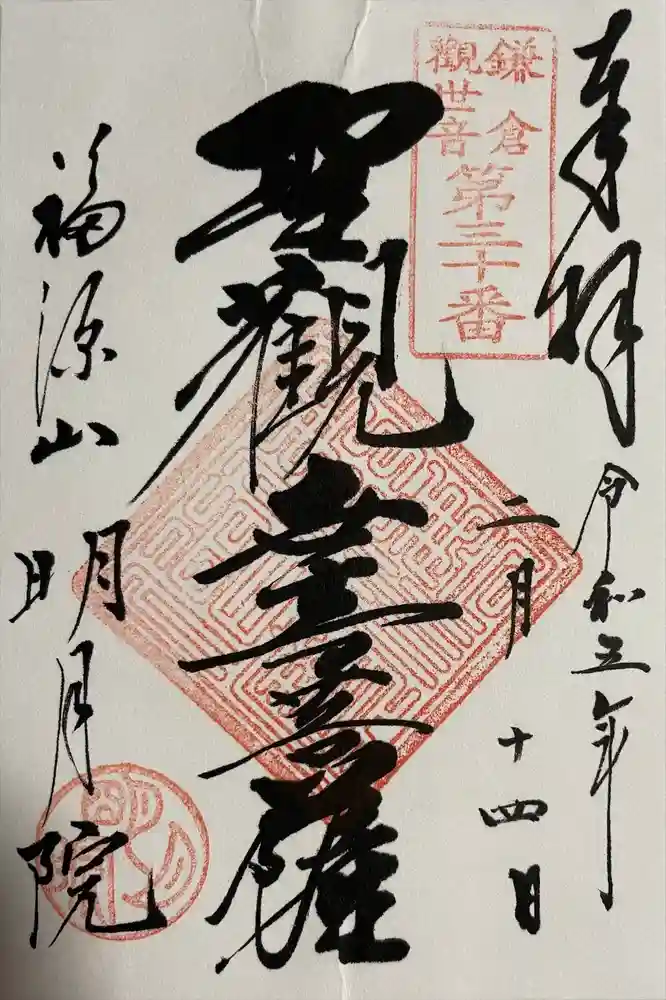 奉拝
令和五年
二月
十四日
鎌倉
觀世音
第三十番
聖觀世音菩薩
福源山
明月院